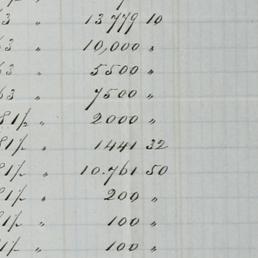 3 " 13779 10
63 " 10,000 "
63 " 5500 "
63 " 7500 "
81/2 " 2000 "
81/2 " 1441 32
81/2 " 10.761 50
81/2 " 200 "
1/2 " 100 "
81/2 " 100 "